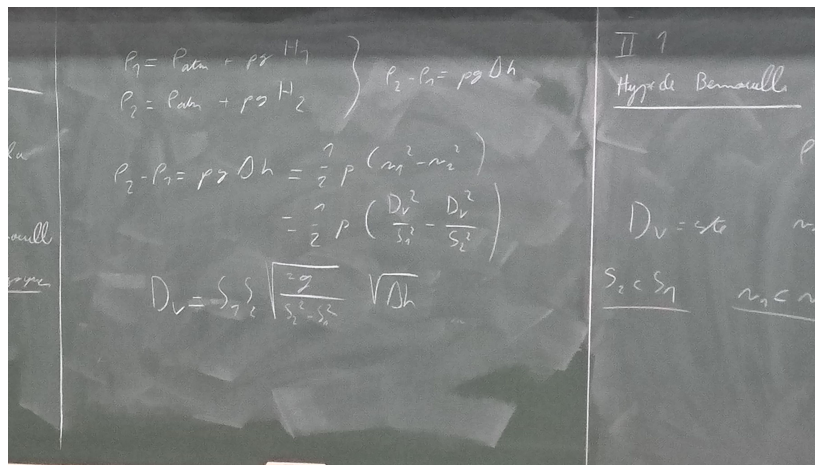 P₁ = Patm + ρg H₁
P₂ = Patm + ρg H₂
P₂ - P₁ = ρg Δh
P₂ - P₁ = ρg Δh = 1/2 ρ (v₁² - v₂²)
= 1/2 ρ (Dv²/S₁² - Dv²/S₂²)
Dv = S₁ S₂ √(2g/(S₂² - S₁²)) √Δh
II 1
Hyp de Bernoulli
Dv = cte
S₂ < S₁